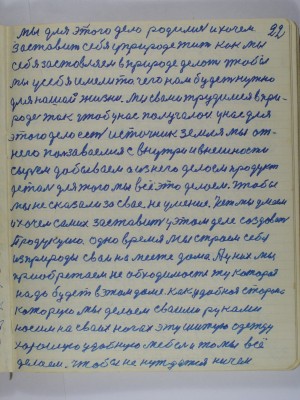 22
Мы для этого дело родились и хочем
заставить себя у природе жить как мы
себя заставляем в природе делать чтобы
мы у себя имели то чего нам будет нужно
для нашай жизни. Мы сваи трудимся в при-
роде так чтоб у нас получалось у нас для
этого дело есть источник земля мы от
него пользваемся с внутри и внешности
сырьем добываем а из него делаем продукт
детал для того мы всё это делаем. Чтобы
мы не сказали за свае не умение. Нет мы умеем
и хочем самих заставить у этом деле создавать
продукцию. Одно время мы строем себе
из природы сваи на месте дома. А у них мы
приобретаем не обходимости ту которая
надо будет в этом доме как удобная сторона
которую мы делаем сваими руками
носим на сваих ногах эту шитую одежду
хорошую удобную мебель и то мы всё
делаем. Чтобы не нуждатся ничем